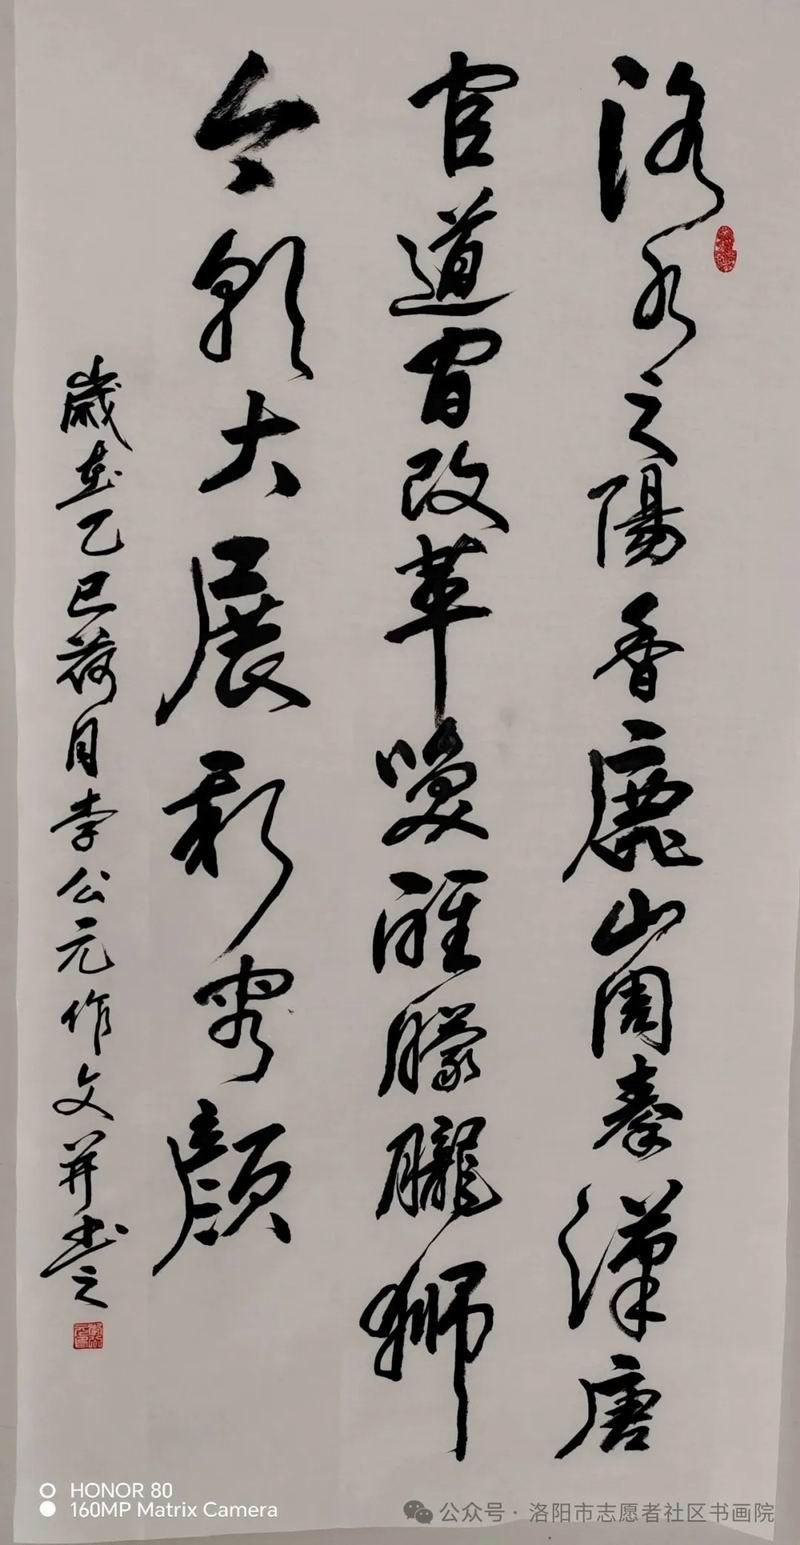 洛水之陽香麗山周秦漢唐
官道宮改革喚醒朦朧獅
今朝大展新容顏
歲在乙巳荷月李公元作文并書之
HONOR 80
160MP Matrix Camera
公众号 · 洛阳市志愿者社区书画院